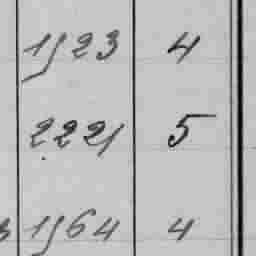 1523 4
2221 5
1564 4